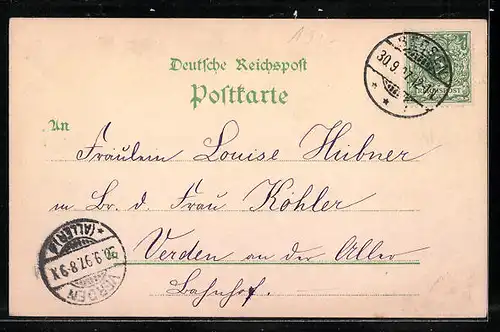 Deutsche Reichspost
Postkarte
An
Fräulein Louise Hübner
m. Br. d. Frau Köhler
in Verden an der Aller
Bahnhof.
30.9.97
VERDEN
(ALLER)
30.9.97.8-9N.
REICHSPOST